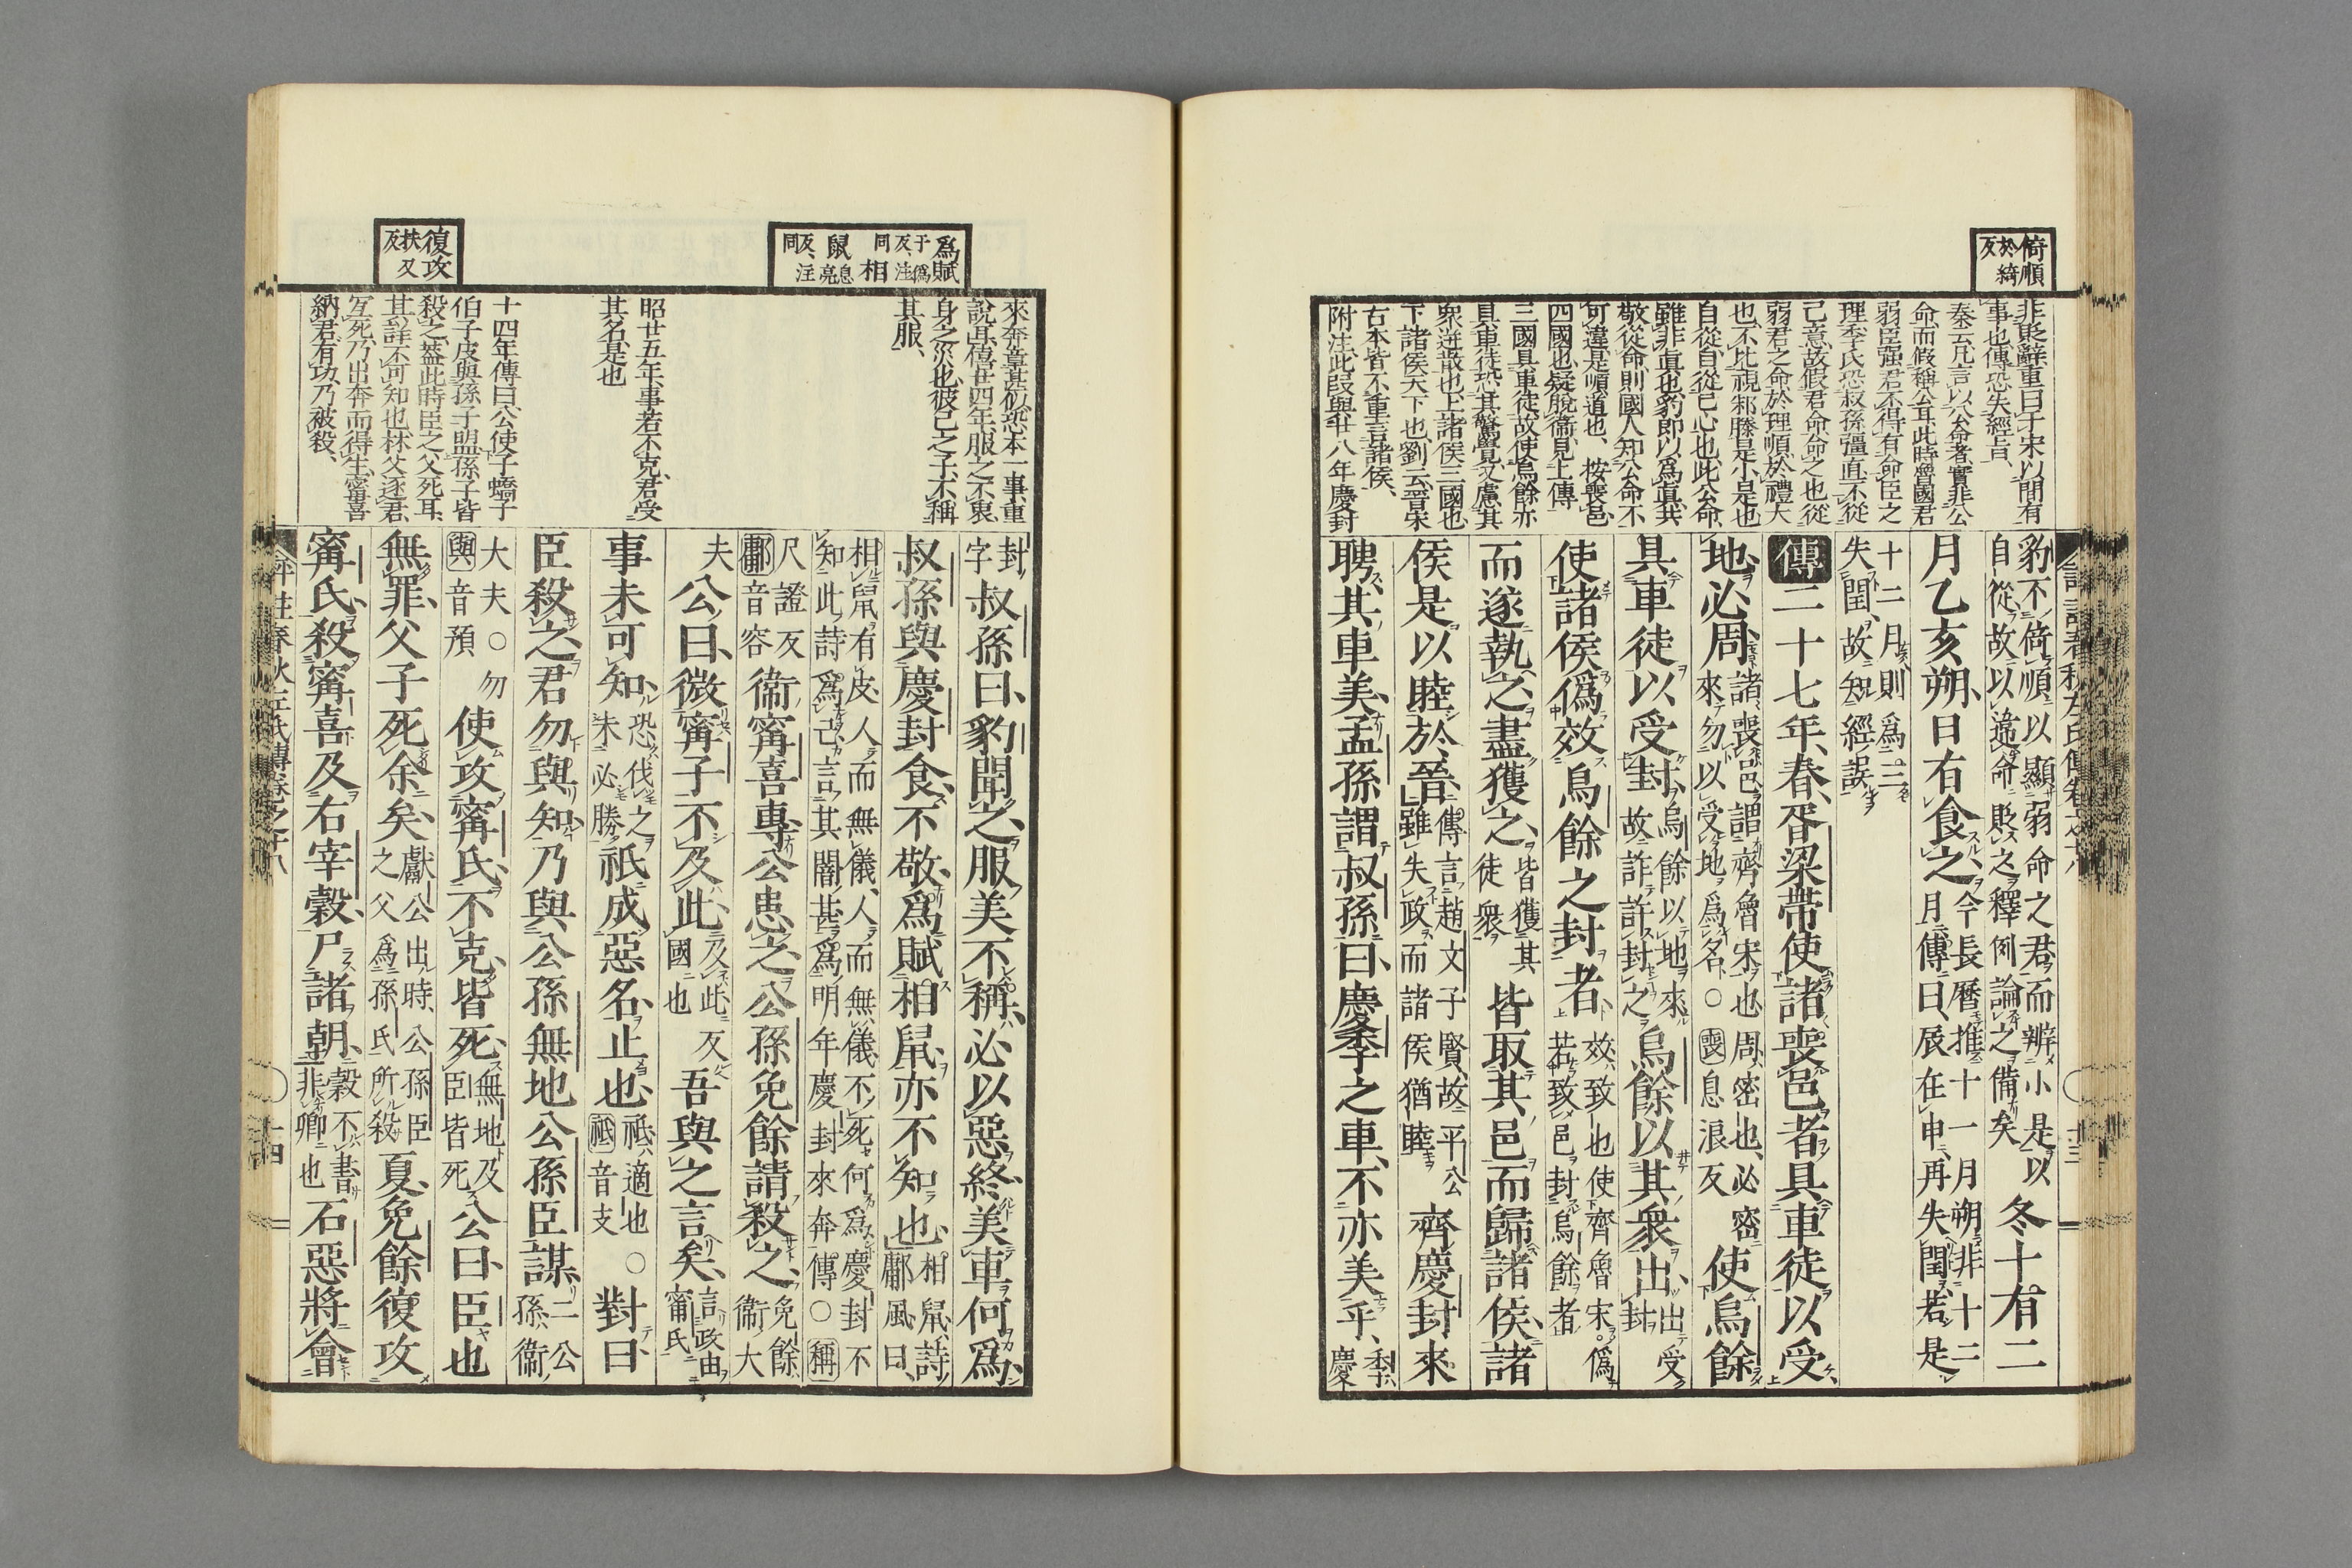 倚順
於綺
反
非貶辭重曰于宋以間有
事也傳恐失經旨、
秦云凡言以公命者實非公
命而假稱公耳此時魯國君
弱臣强君不得有命臣之
理季氏恐叔孫彊直不從
己意故假君命命之也從
弱君之命於理順於禮大
也不比視邾滕是小是也
自從自從己心也此公命
雖非眞也豹即以爲眞共
敬從命則國人知公命不
可違是順道也、按喪邑
四國也疑脫衞見上傳
三國具車徒故使烏餘亦
具車徒恐其驚覺又慮其
衆迸散也上諸侯三國也
下諸侯天下也劉云晉宋
古本皆不重言諸侯、
附注此段與廿八年慶封
豹不倚順以顯弱命之君而辨小是以
自從故以違命貶之釋例論之備矣
冬十有二
月乙亥朔、日有食之、
今長曆推十一月朔非十二
月傳曰辰在申再失閏若是
十二月則爲三
失閏故知經誤
傳二十七年、春、胥梁帶使諸喪邑者具車徒以受
地、必周、
諸喪邑謂齊魯宋也周密也必密
來勿以受地爲名○喪息浪反
使烏餘
具車徒以受封、
烏餘以地來
故詐許封之
烏餘以其衆出、
出受
封
使諸侯僞效烏餘之封者
效致也使齊魯宋僞
若致邑封烏餘者
而遂執之盡獲之、
皆獲其
徒衆
皆取其邑而歸諸侯、諸
侯是以睦於晉、
傳言趙文子賢故平公
雖失政而諸侯猶睦
齊慶封來
聘、其車美、孟孫謂叔孫曰、慶季之車、不亦美乎、
季
慶
爲賦
于僞
反注
同
相
鼠
息亮
反、注
同
來奔章甚似恐本一事重
說昌僖廿四年服之不衷
身之災也彼己之子不稱
其服、
昭廿五年事若不克君受
其名是也
復攻
扶又
反
十四年傳曰公使子蟜子
伯子皮與孫子盟孫子皆
殺之、蓋此時臣之父死耳、
其詳不可知也林父逐君、
互死乃出奔而得生甯喜
納君有功乃被殺、
封
字
叔孫曰、豹聞之、服美不稱、必以惡終、美車何爲、
叔孫與慶封食、不敬、爲賦相鼠、亦不知也、
相鼠詩
鄘風曰、
相鼠有皮、人而無儀、人而無儀、不死何爲慶封不
知此詩爲己言其闇甚爲明年慶封來奔傳○稱
尺證反
鄘音容
衞甯喜專公患之公孫免餘請殺之、
免餘
衞大
夫
公曰、微甯子不及此、
及此反
國也
吾與之言矣、
言政由
甯氏
事未可知、
恐伐之
未必勝
祇成惡名、止也、
祇適也
祇音支
○對曰
臣殺之君勿與知乃與公孫無地公孫臣謀、
二公
孫衞
大夫○勿
與音預
使攻甯氏、不克、皆死、
無地及
臣皆死
公曰、臣也
無罪、父子死余矣、
獻公出時公孫臣
之父爲孫氏所殺
夏、免餘復攻
甯氏、殺甯喜及右宰穀、尸諸朝、
穀不書
非卿也
石惡將會